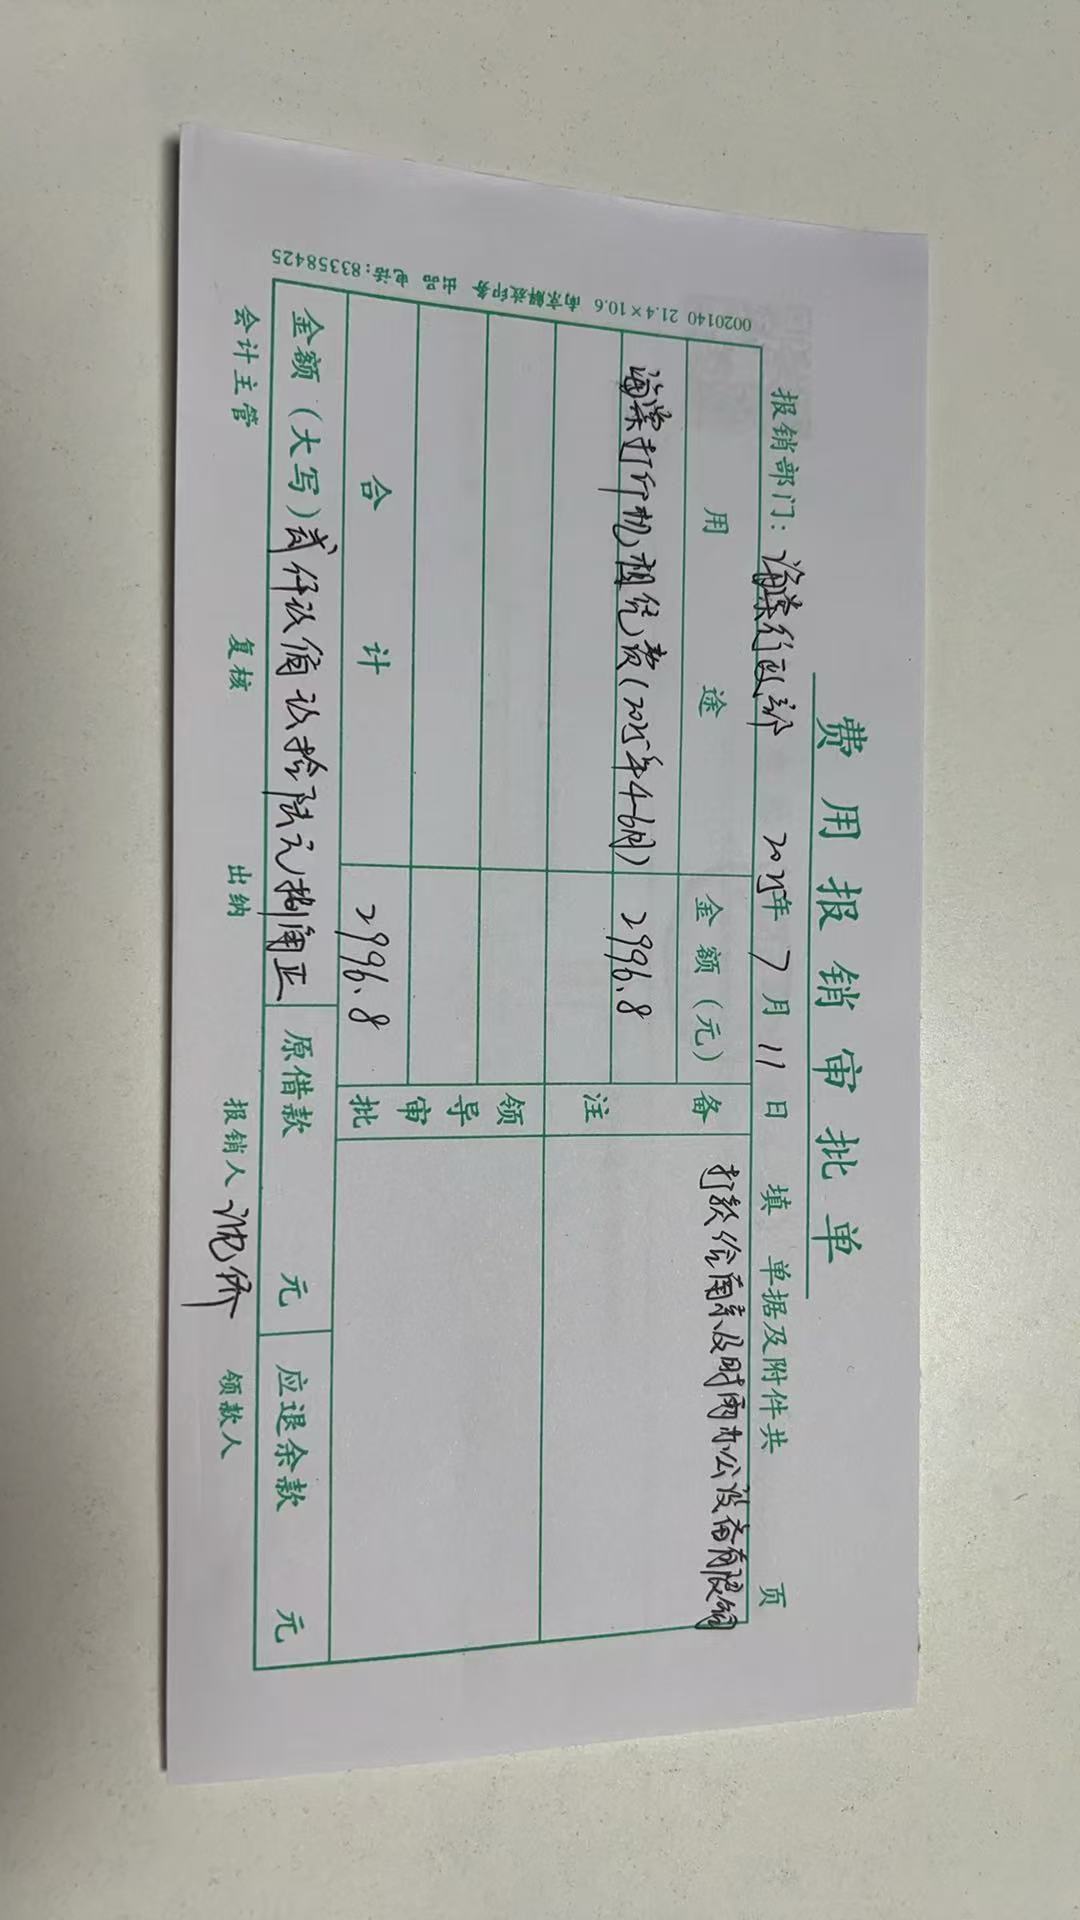 费用报销审批单
报销部门：海棠行政部 2025年7月11日填 单据及附件共 页
用途 金额(元) 备注 打款给南京及时雨办公设备有限公司
海棠打印机租赁费(2025年4-6月) 2996.8
领导审批
合计 2996.8
金额(大写)贰仟玖佰玖拾陆元捌角正 原借款 元 应退余款 元
会计主管 复核 出纳 报销人 领款人
0020140 21.4×10.6 南京解放印务 出品 电话:83358425